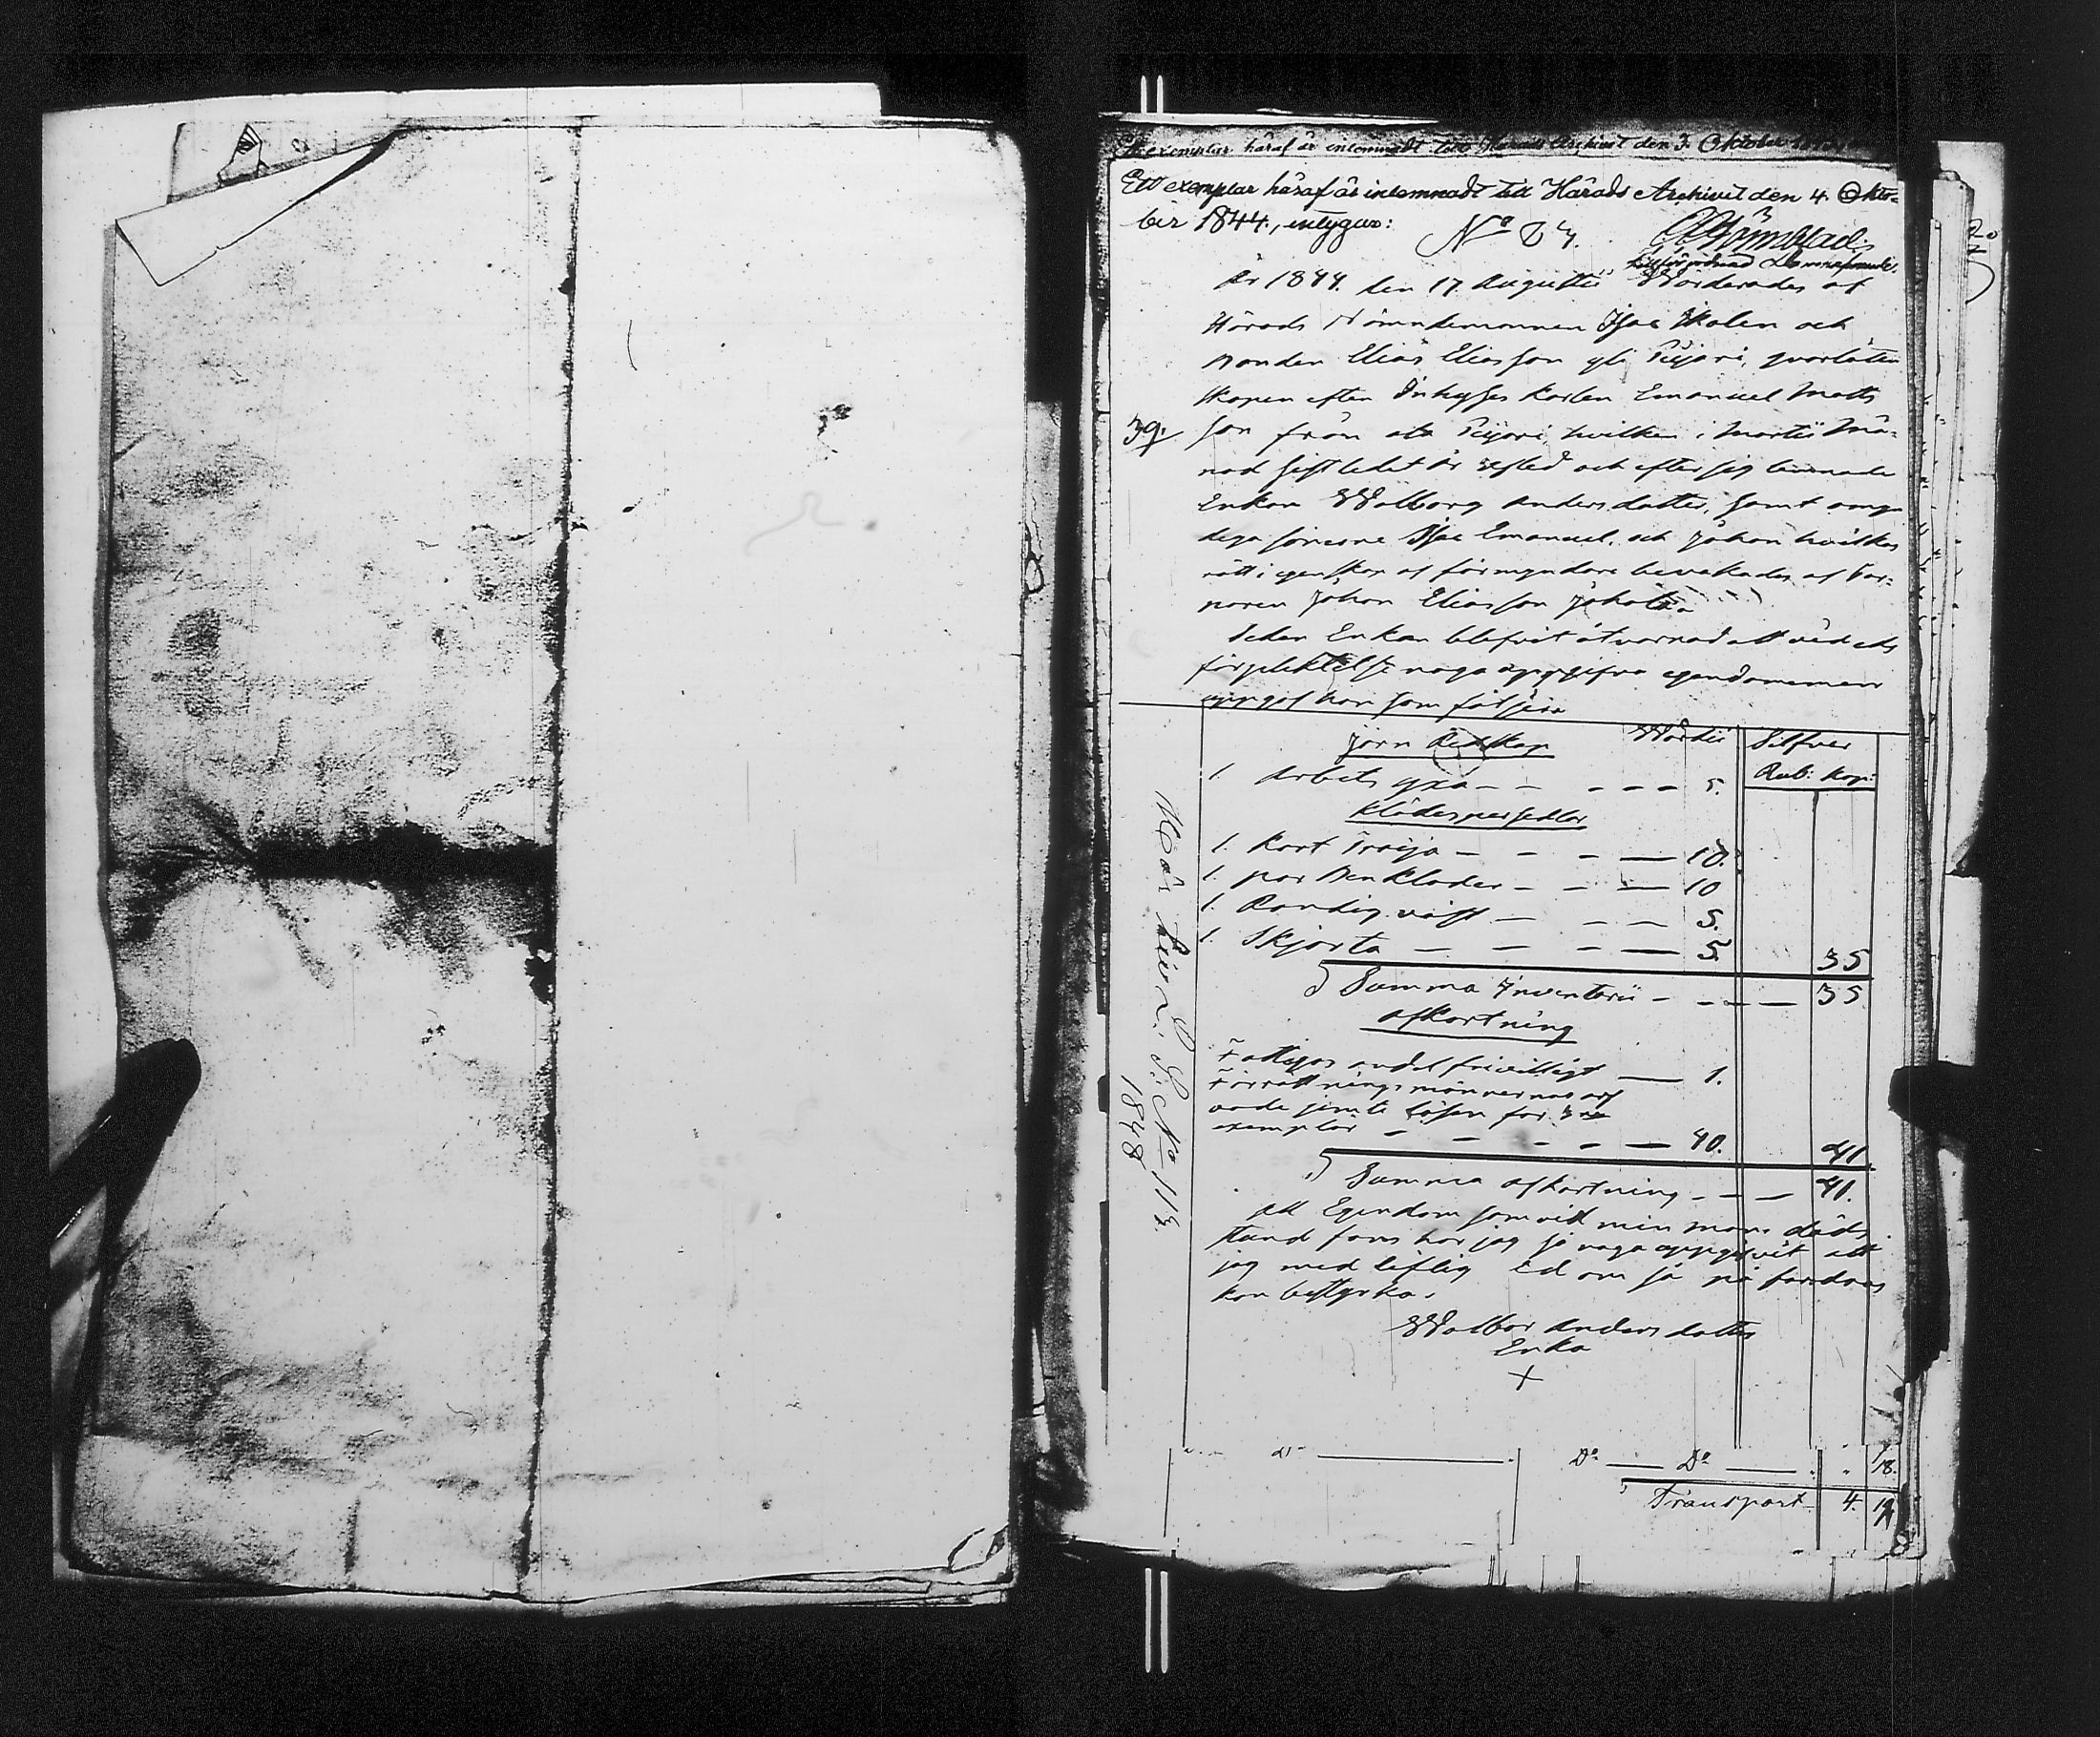 exemplar häraf är inlemnadt till Härads Archivet den 3. Oktober
Ett exemplar häraf är inlemnadt till Härads Archivet den 4. Okto-
ber 1844., intygar:
No
År 1844. den 17 Augustii Wärderades af
Härads Nämndemannen Isac Skalen och
Bonden Elias Eliasson yli Pijari, qvarlåten
skapen efter Inhyses Karlen Emanuel Matts
39. son från ala Pijari, hvilken i Martii Må-
nad sistledet år afled och efter sig lemnade
Enkan Walborg Andersdotter, samt omyn
diga sönerne Isac Emanuel, och Johan hvilkas
rätt i egenskap af förmyndare bevakades af
Johan Eliasson
Sedan Enkan blifvit åtvarnad att vid eds
förpliktelse noga uppgifva egendomemen
uppgaf hon som följer
Järn Redskap Wärdie Silfver
Rub: Kop:
1. Arbets yxa - - - - - 5.
Klädespersedlar
1. Kort Tröija - - - - 10.
1. par Benkläder - - - 10
1. Randig väst - - - 5.
1. Skjorta - - - - 5. 35
Summa Inventarii - - - 35
Afkortning
Fattigas andel frivilligt - 1.
Förrättningsmännernas arf
vode jemte lösen för 3ne
exemplar - - - - - 40. 41.
Summa afkortning - - - 41.
att Egendom som vid min mans döds
stund fans har jag så noga uppgifvit att
jag med liflig Ed om så på fordras
kan bestyrka.
Walbor Andersdotter
Enka
+
No 113.
1848
Do Do 18.
Transport 4. 19